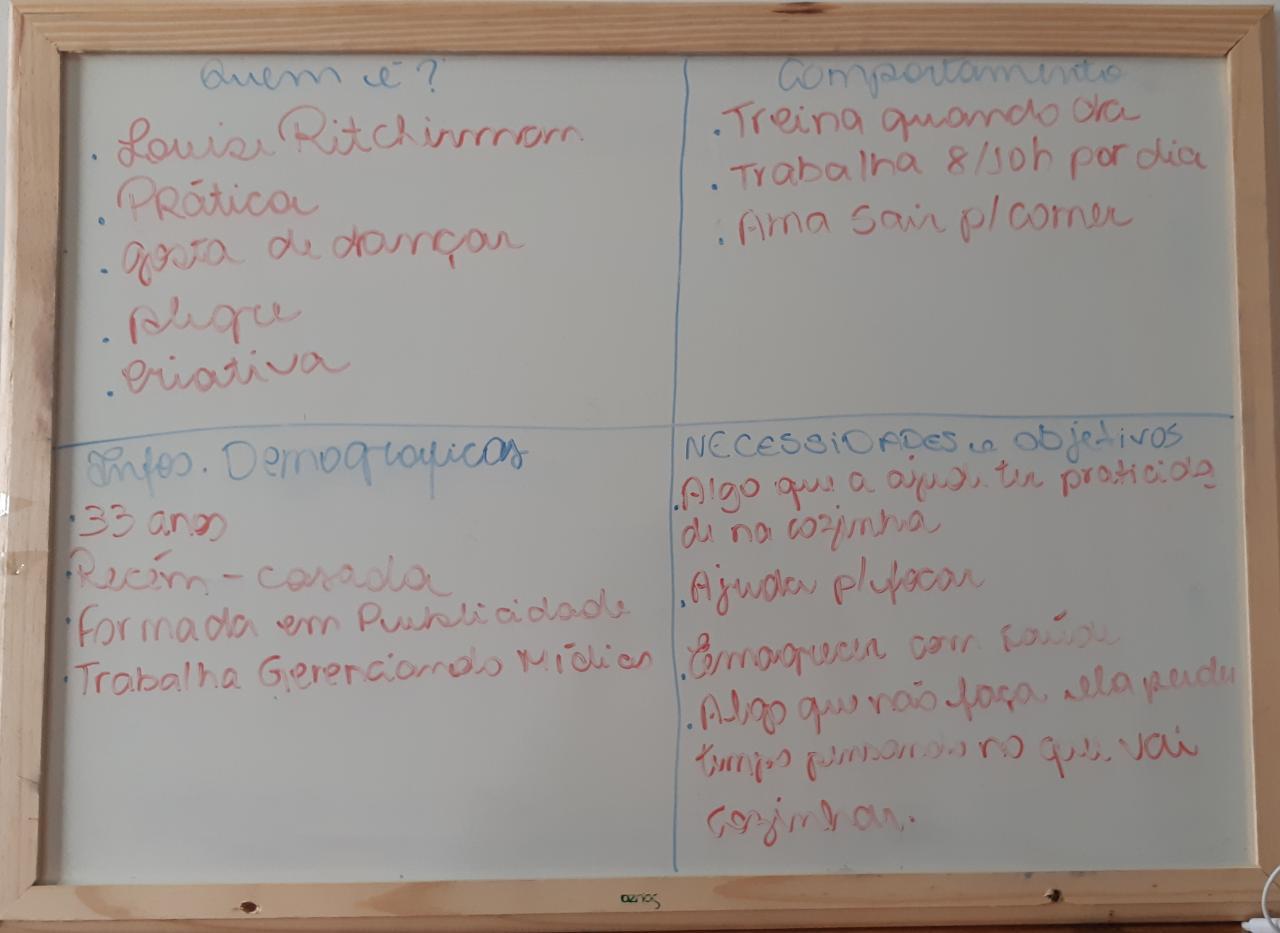 Quem é?
. Louise Ritchinmam
. Prática
. gosta de dançar
. alegre
. criativa
Comportamento
. Treina quando da
. Trabalha 8/10h por dia
. Ama sair p/ comer
Infos. Demograficas
. 33 anos
. Recém-casada
. formada em Publicidade
. Trabalha Gerenciando Mídias
NECESSIDADES e Objetivos
. Algo que a ajude ter praticida
de na cozinha
. Ajuda p/ focar
. Emagrecer com saúde
. Algo que não faça ela perder
tempo pensando no que vai
cozinhar.
souza